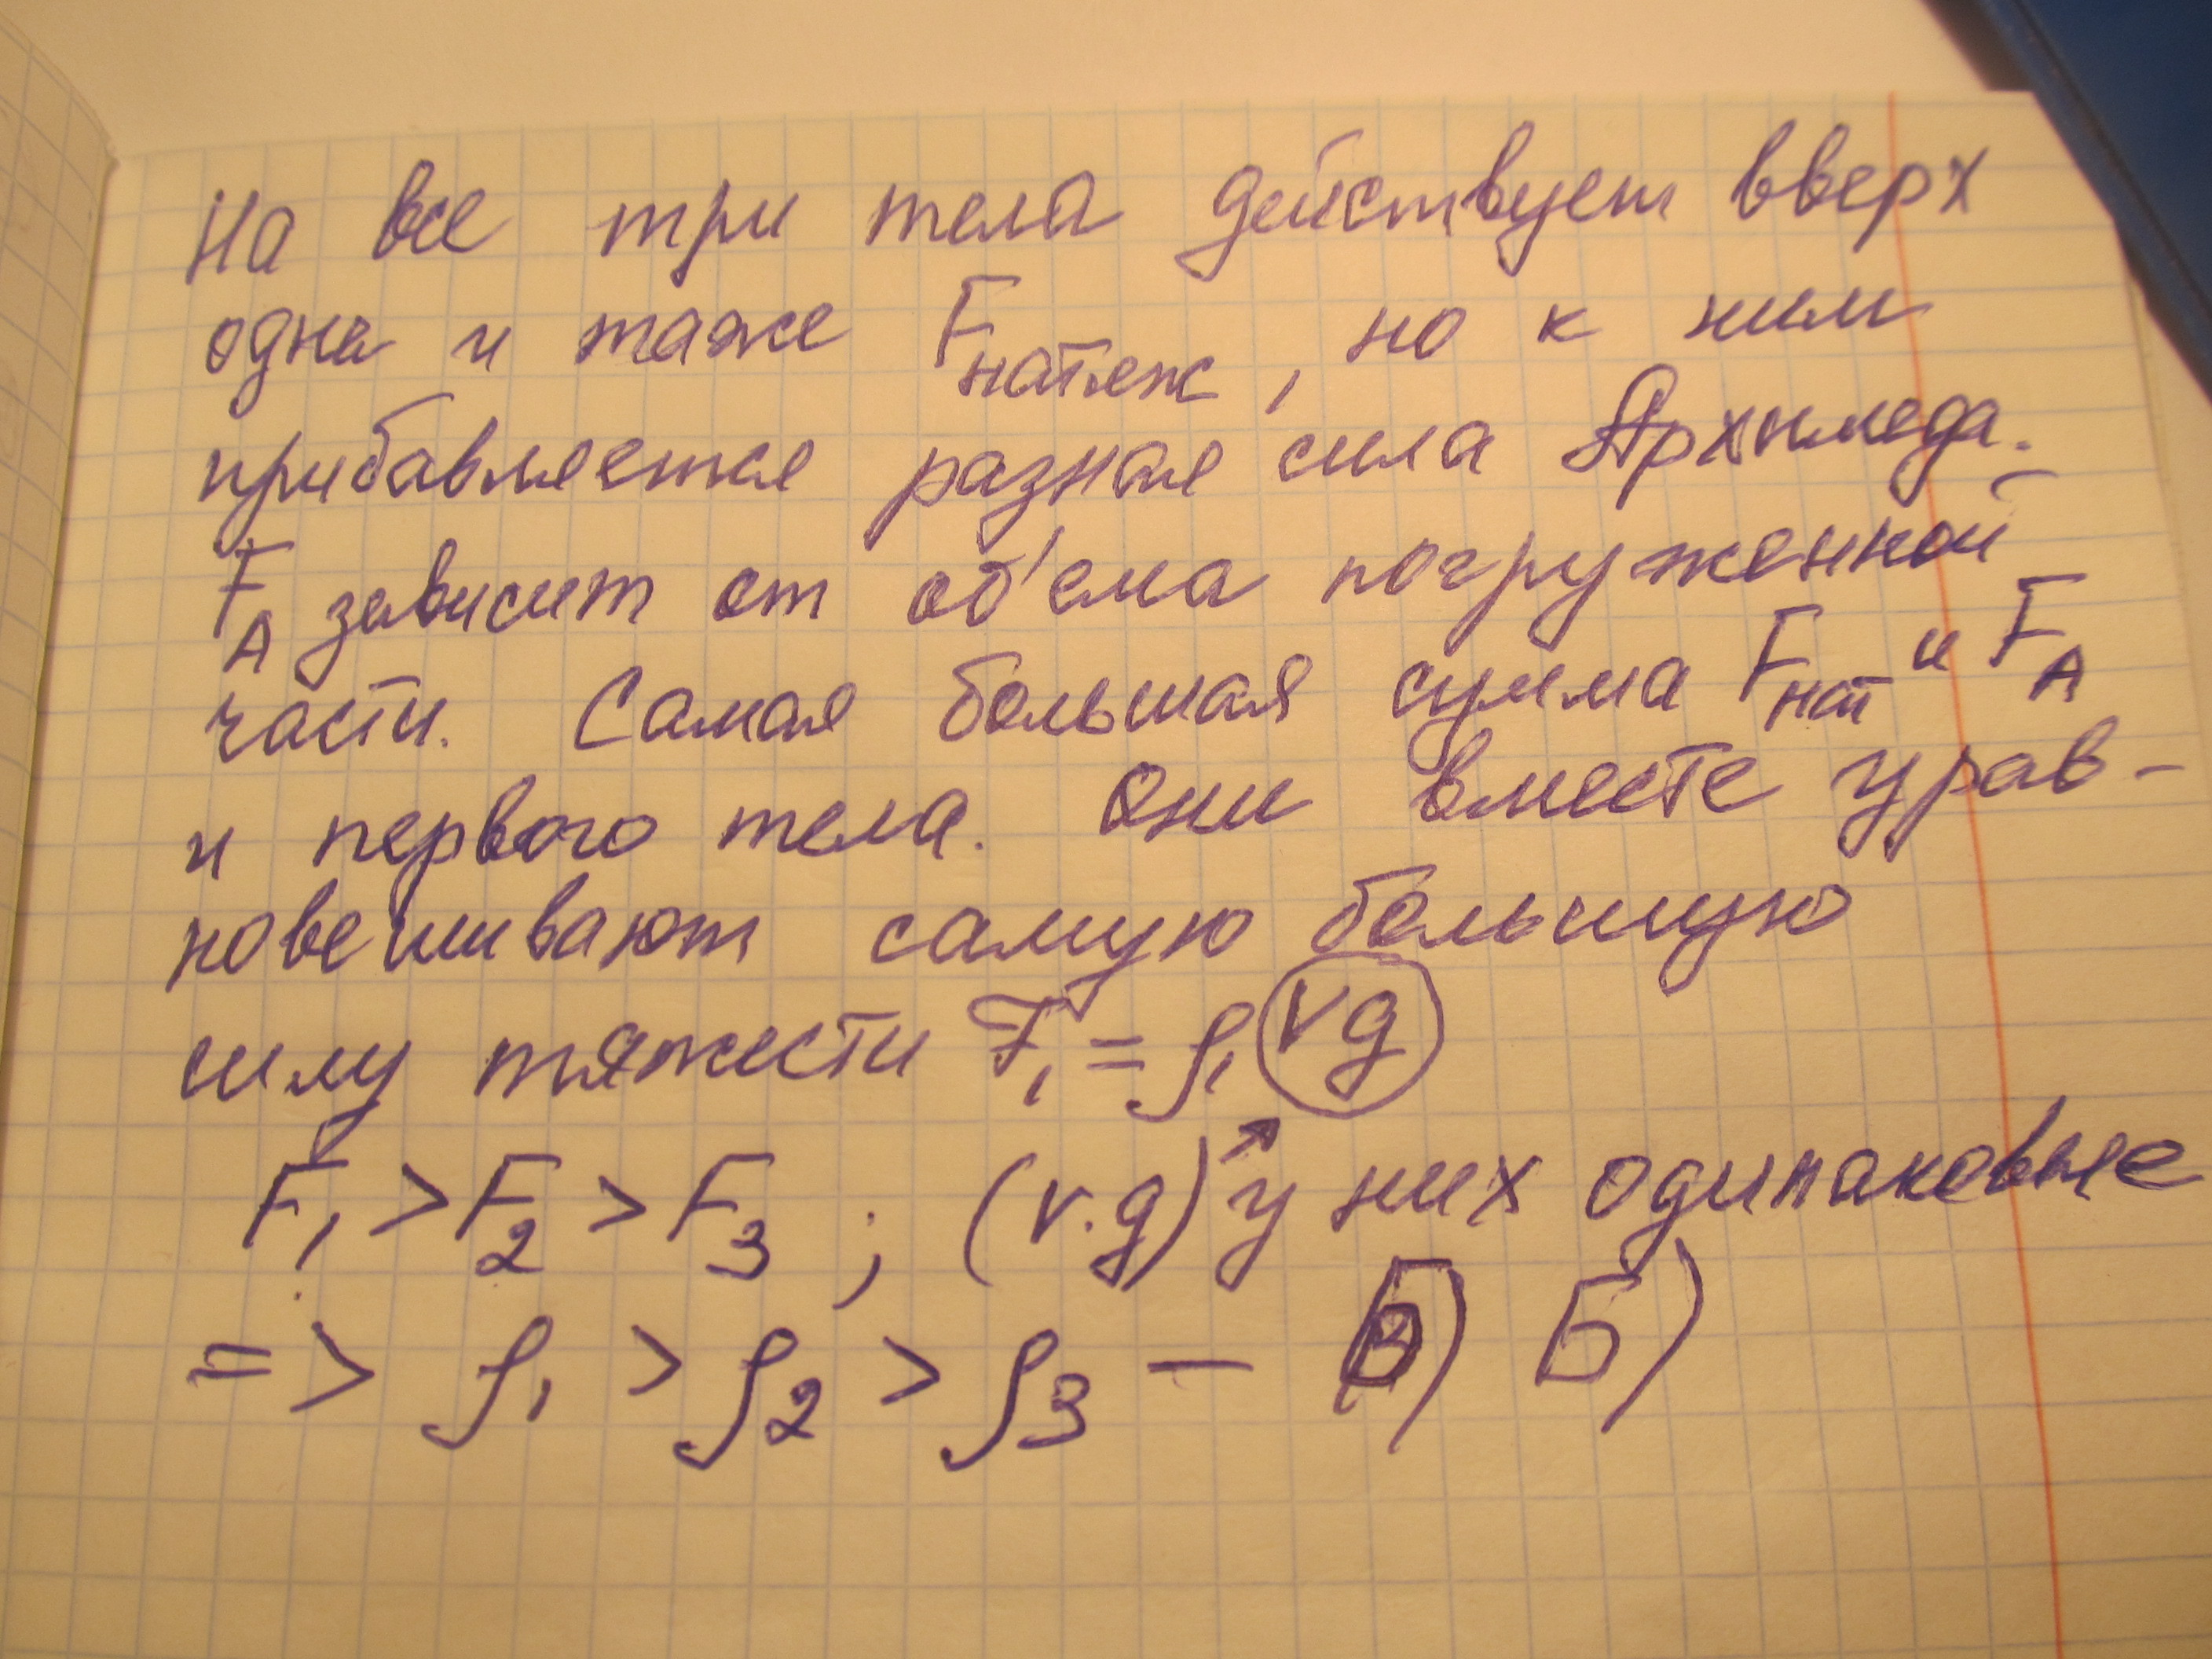 На все три тела действует вверх
одна и таже F натяж, но к ним
прибавляется разная сила Архимеда.
F A зависит от об'ема погруженной
части. Самая большая сумма F нат и F A
и первого тела. Они вместе урав-
новешивают самую большую
силу тяжести F₁ = ρ₁ vg
F₁ > F₂ > F₃ ; (v·g) у них одинаковые
=> ρ₁ > ρ₂ > ρ₃ — Б) Б)